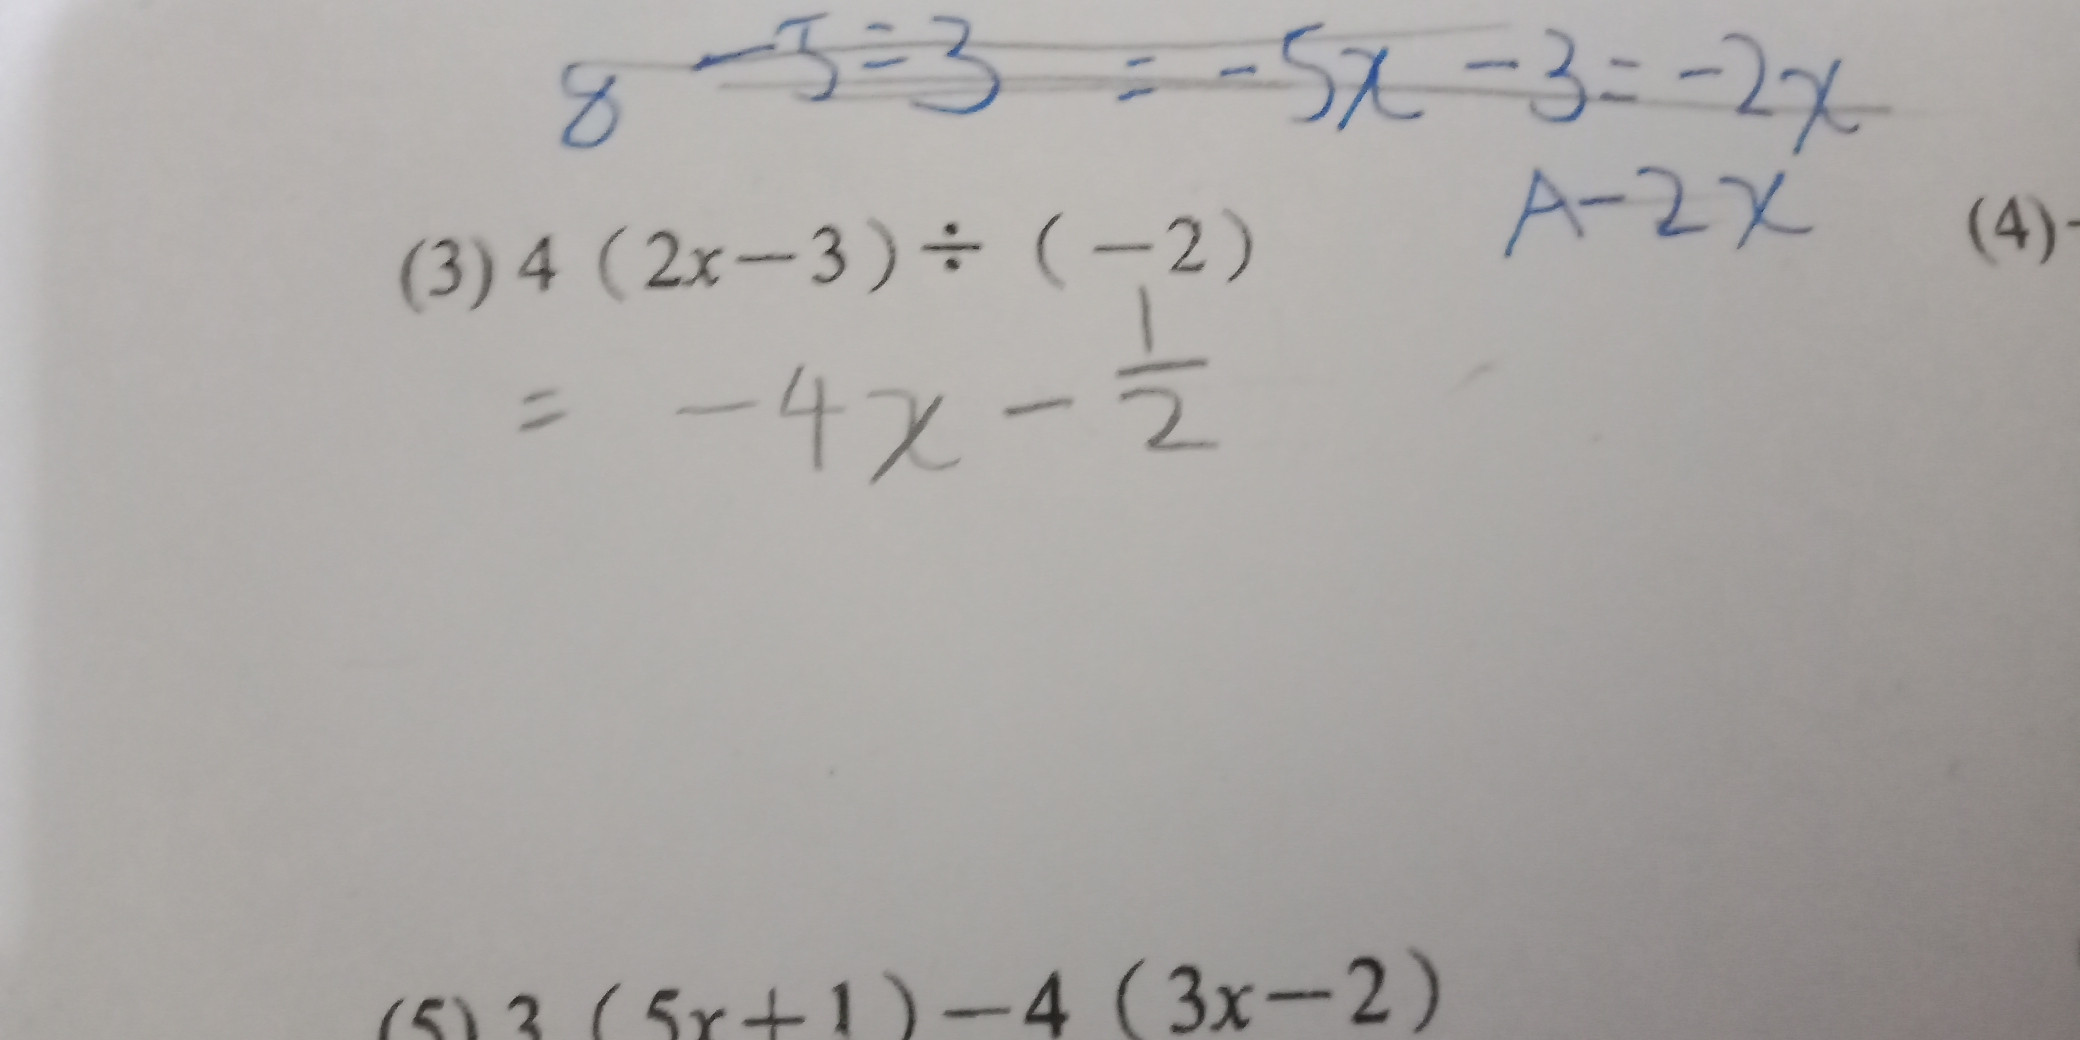 8 -5=3 = -5x -3= -2x
A-2x
(3) 4 (2x-3)÷(-2)
(4)-
= -4x - 1/2
(5) 3 (5x+1)-4 (3x-2)